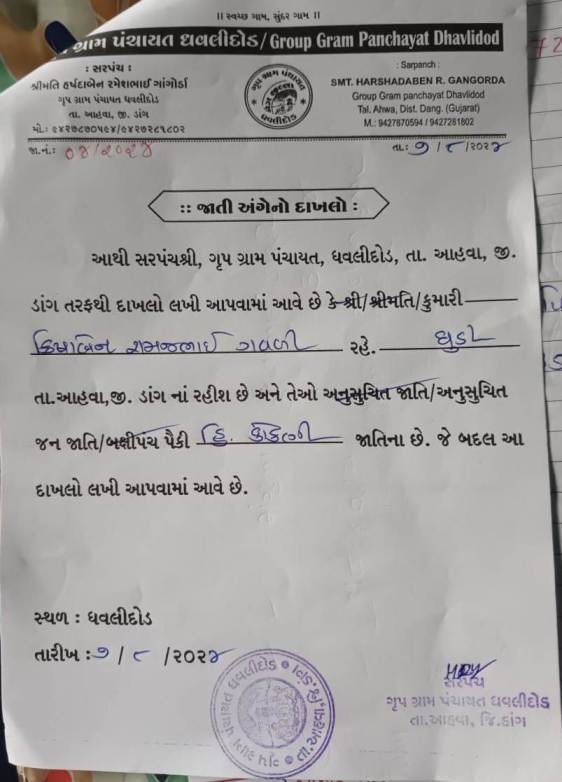 ।। સ્વચ્છ ગામ, સુંદર ગામ ।।
ગ્રામ પંચાયત ધવલીદોડ / Group Gram Panchayat Dhavlidod
: સરપંચ :
શ્રીમતિ હર્ષદાબેન રમેશભાઈ ગાંગોર્ડા
ગૃપ ગ્રામ પંચાયત ધવલીદોડ
તા. આહવા, જી. ડાંગ
મો.: ૯૪૨૭૮૭૦૫૯૪/૯૪૨૭૨૮૧૮૦૨
: Sarpanch :
SMT. HARSHADABEN R. GANGORDA
Group Gram panchayat Dhavlidod
Tal. Ahwa, Dist. Dang. (Gujarat)
M.: 9427870594 / 9427281802
જા.નં.: ૦૪/૨૦૨૪
તા.: ૭/૮/૨૦૨૪
:: જાતી અંગેનો દાખલો :
આથી સરપંચશ્રી, ગૃપ ગ્રામ પંચાયત, ધવલીદોડ, તા. આહવા, જી.
ડાંગ તરફથી દાખલો લખી આપવામાં આવે છે કે શ્રી/શ્રીમતિ/કુમારી
ગવળી રહે. ઘુડા
તા.આહવા,જી. ડાંગ નાં રહીશ છે અને તેઓ અનુસુચિત જાતિ/અનુસુચિત
જન જાતિ/બક્ષીપંચ પૈકી હિ. જાતિના છે. જે બદલ આ
દાખલો લખી આપવામાં આવે છે.
સ્થળ : ધવલીદોડ
તારીખ : ૭/૮/૨૦૨૪
સરપંચ
ગૃપ ગ્રામ પંચાયત ધવલીદોડ
તા.આહવા, જિ.ડાંગ